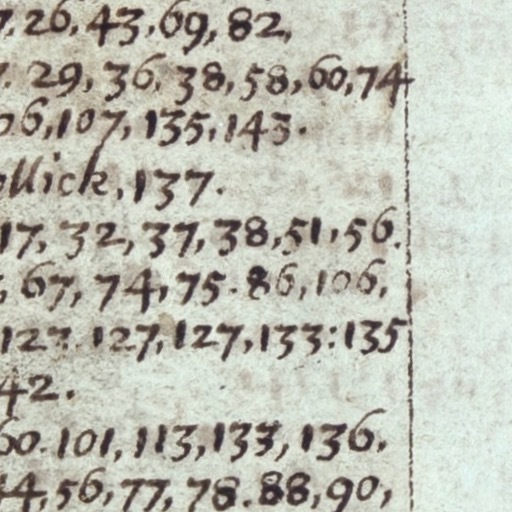 7, 26, 43, 69, 82,
7. 29, 36, 38, 58, 60, 74
06, 107, 135, 143.
ollick, 137.
17, 32, 37, 38, 51, 56.
, 67, 74, 75. 86, 106,
123. 127, 127, 133: 135
42.
60. 101, 113, 133, 136,
44, 56, 77, 78. 88, 90,